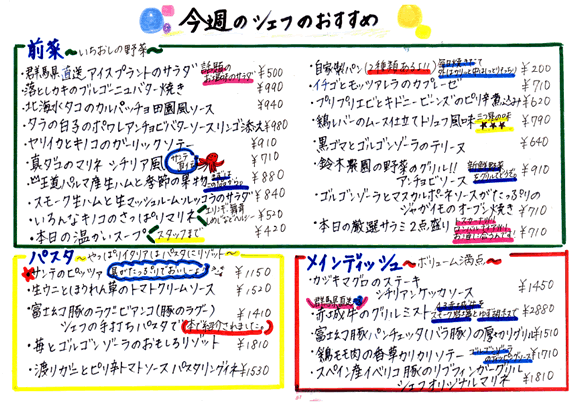 今週のシェフのおすすめ
前菜 ～いちおしの野菜～
・群馬県直送アイスプラントのサラダ ¥500
・落としカキのゴルゴンゾーニュバター焼き ¥990
・北海水タコのカルパッチョ田園風ソース ¥940
・タラの白子のポワレアンチョビバターソースリンゴ添え ¥980
・ヤリイカとキノコのガーリックソテー ¥910
・真ダコのマリネ シチリア風 ¥710
・山王道パルマ産生ハムと季節の果物 ¥880
・スモーク生ハムと生マッシュルーム・ルッコラのサラダ ¥840
・いろんなキノコのさっぱりマリネ ¥520
・本日の温かいスープ スタッフまで ¥420
・自家製パン(2種類あるよ!!) ¥200
・イチゴとモッツァレラのカプレーゼ ¥710
・プリプリエビとキドニービーンズのピリ辛煮込み ¥620
・鶏レバーのムース仕立てトリュフ風味 ¥790
・黒ゴマとゴルゴンゾーラのテリーヌ ¥640
・鈴木農園の野菜のグリル!!
アンチョビソース ¥910
・ゴルゴンゾーラとマスカルポーネソースがたっぷりの
ジャガイモのオーブン焼き ¥710
・本日の厳選サラミ2点盛り ¥710
パスタ ～やっぱりイタリアにはパスタにリゾット～
・サンテのピッツァ 具がたっぷりでおいしーよ ¥1150
・生ウニとほうれん草のトマトクリームソース ¥1520
・富士幻豚のラグービアンコ(豚のラグー) ¥1410
シェフの手打ちパスタで
・苺とゴルゴンゾーラのおもしろリゾット ¥1810
・渡りガニとピリ辛トマトソース パスタリングイネ ¥1530
メインディッシュ ～ボリューム満点～
・カジキマグロのステーキ
シチリアンケッカソース ¥1450
群馬県直送
・赤城牛のグリルミスト ¥2880
・富士幻豚パンチェッタ(バラ豚)の厚切りグリル ¥1510
・鶏モモ肉の香草カリカリソテー ¥1710
・スペイン産イベリコ豚のリブフィンガーグリル
シェフオリジナルマリネ ¥1810